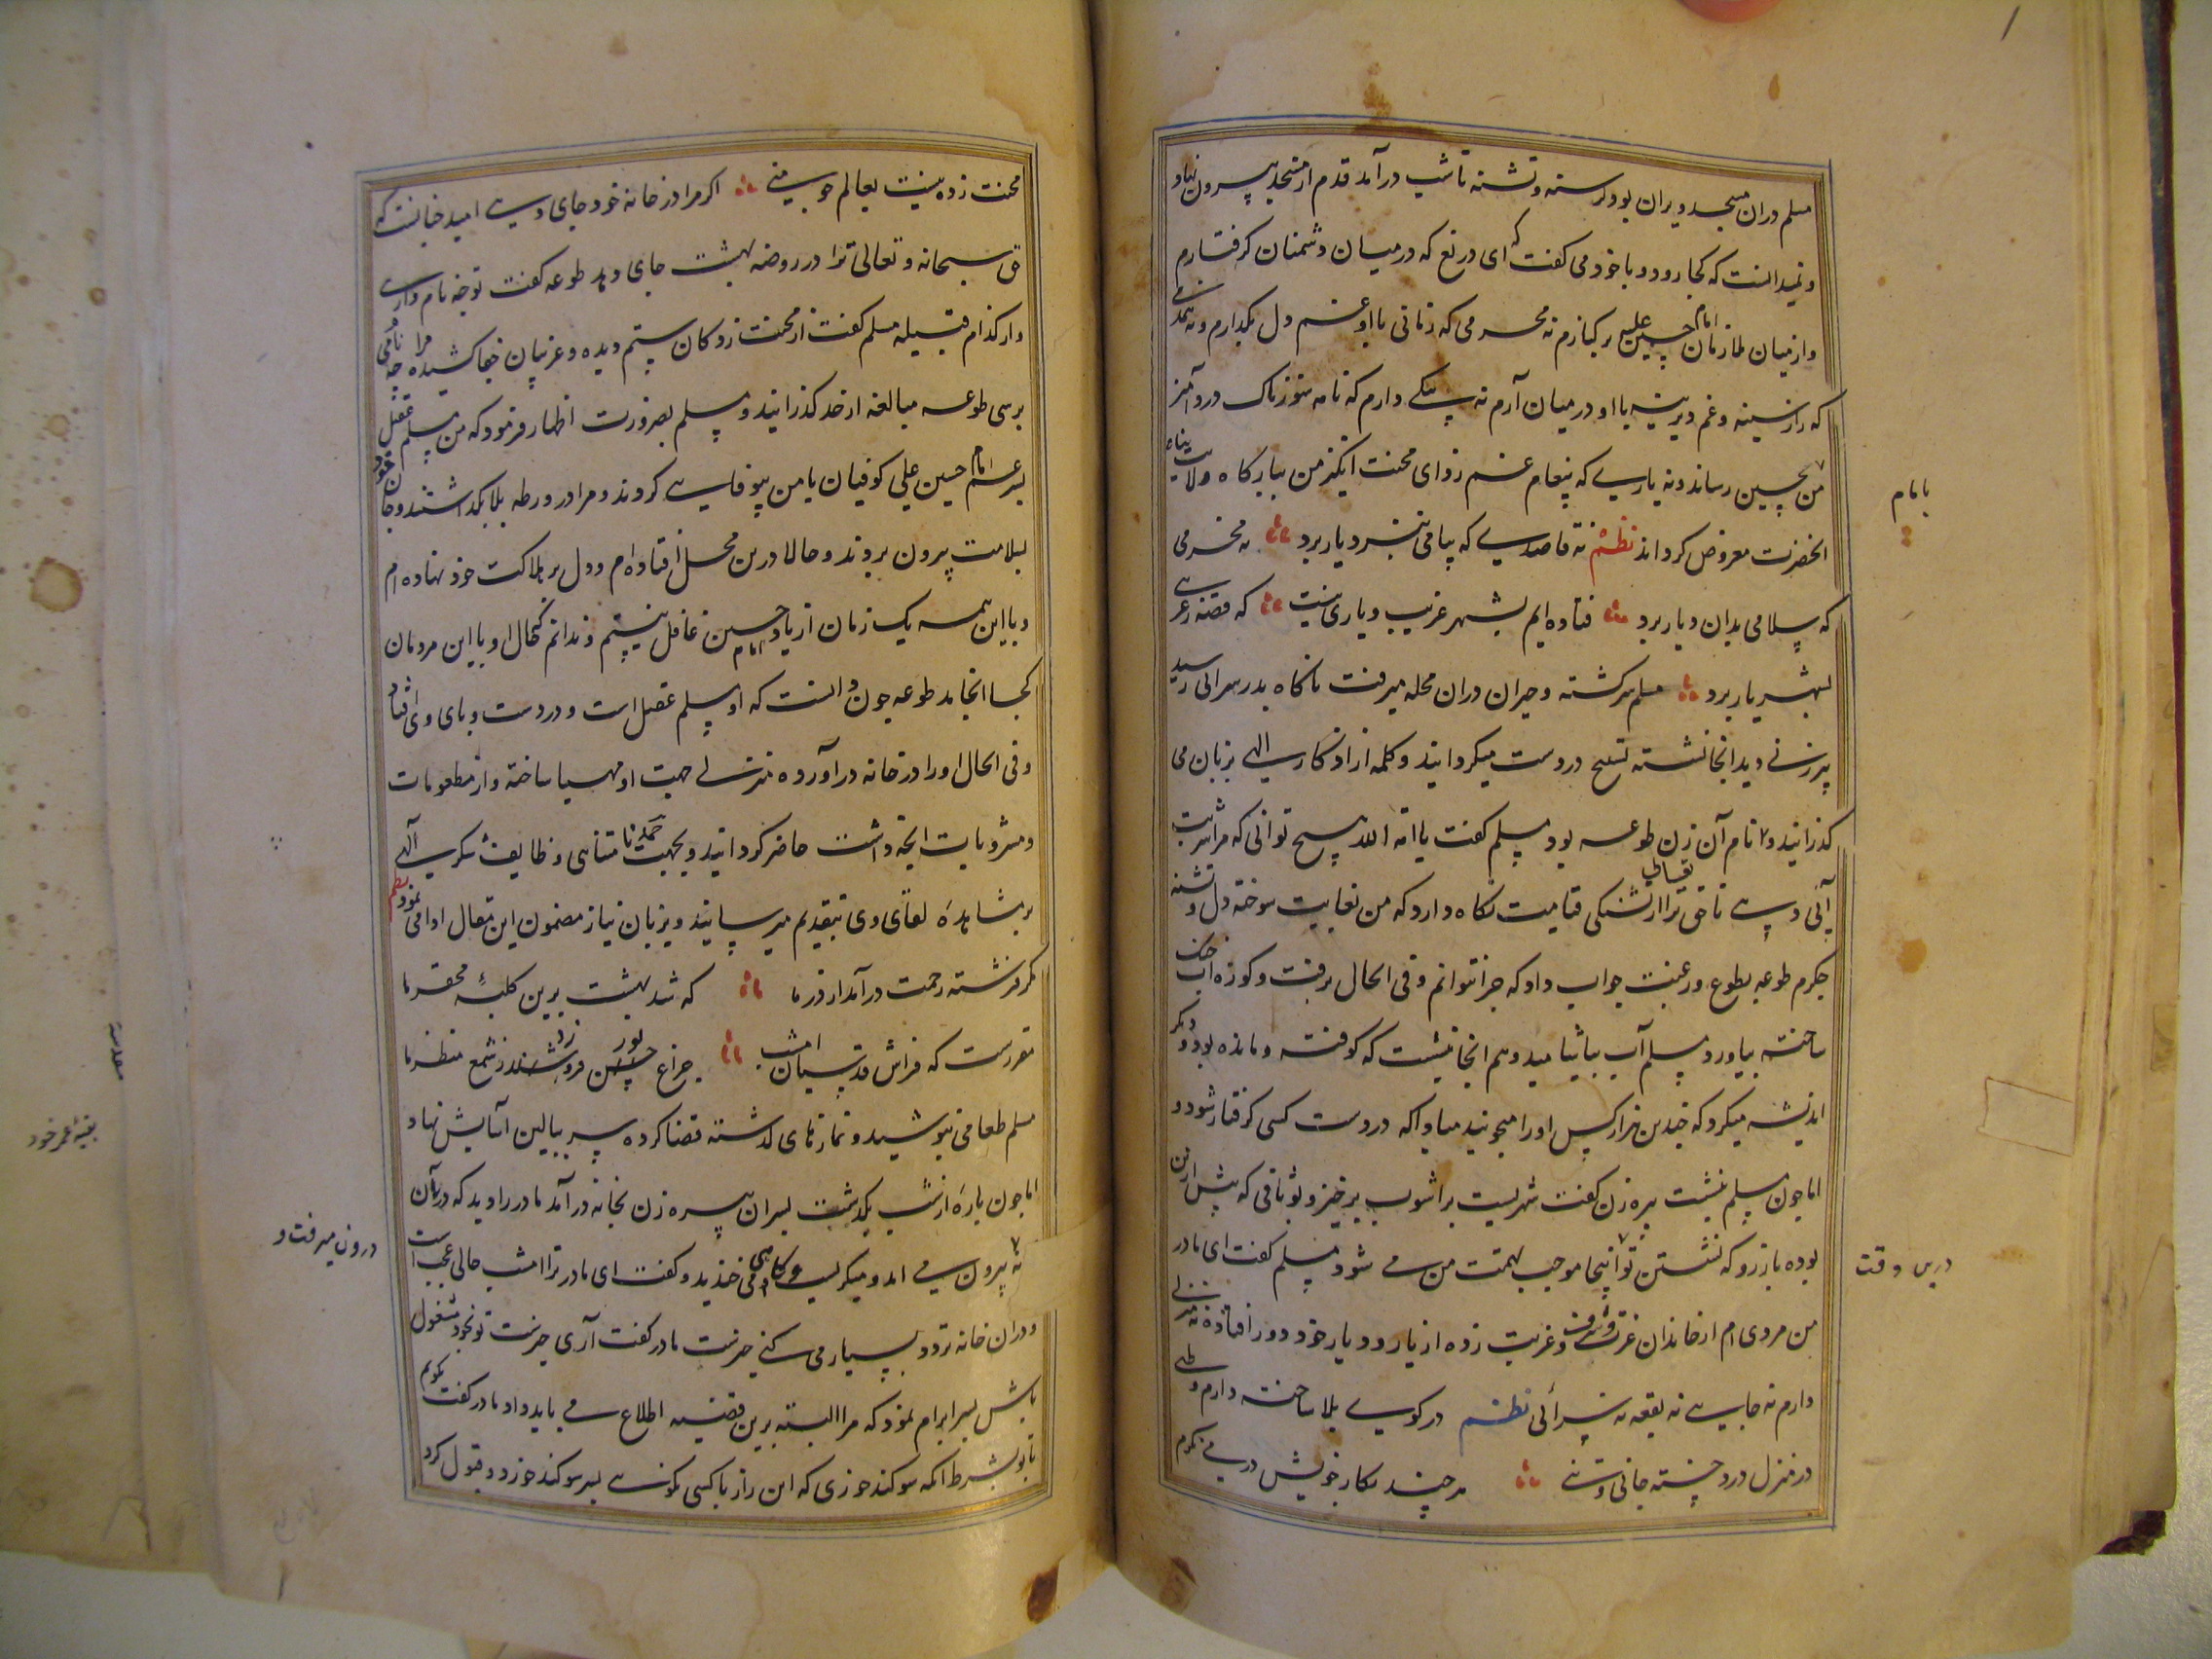 مسلم دران مسجد ویران بود گرسنه و تشنه تا شب درآمد قدم از مسجد بیرون نهاد
و نمیدانست که کجا رود و با خود می گفت که ای دریغ که در میان دشمنان گرفتارم
و از میان ملازمان امام حسین علیه بر کنارم نه محرمی که زمانی با او غم دل بگذارم و نه همدمی
که راز سینه و غم دیرینه با او در میان آرم نه پیکی دارم که نامه سوزناک درد آمیز
من بحسین رساند و نه یاری که پیغام غم زدای محنت انگیز من ببارگاه ولایت پناه
بامام
انحضرت معروض گرداند نظم نه قاصدی که پیامی بنزد یار برد نه محرمی
که سلامی بدان دیار برد فتاده ایم بشهر غریب و یاری نیست که قصه زغریبی
بشهریار برد مسلم سرگشته و حیران دران محله میرفت ناگاه بدر سرائی رسید
پیرزنی دید انجا نشسته تسبیح در دست میگردانید و کلمه از اذکار الهی بزبان می
گذرانید و نام آن زن طوعه بود مسلم گفت یا امة الله هیچ توانی که مرا شربت
آبی دهی تا حق تعالی ترا از تشنگی قیامت نگاه دارد که من بغایت سوخته دل و تشنه
جگرم طوعه بطوع و رغبت جواب داد که چرا نتوانم و فی الحال برفت و کوزه آب خنک
ساخته بیاورد مسلم آب بیاشامید و هم انجا نشست که کوفته و مانده بود و دیگر
اندیشه میکرد که چندین هزار کس او را میجویند مبادا که در دست کسی گرفتار شود و
اما چون مسلم بنشست پیره زن گفت شهریست پرآشوب برخیز و بوثاقی که پیش ازین
بوده باز رو که نشستن تو اینجا موجب تهمت من می شود مسلم گفت ای مادر
درین وقت
من مردی ام از خاندان عز و شرف و غربت زده از یار و دیار خود دور افتاده نه منزلی
دارم نه جایی نه بقعه نه سرائی نظم در کوی بلا ساخته دارم وطنی
در منزل درد خسته جانی و تنی هر چند بکار خویش در می نگرم
محنت زده نیست بعالم چو منی اگر مرا در خانه خود جای دهی امید چنانست که
حق سبحانه و تعالی ترا در روضه بهشت جای دهد طوعه گفت تو چه نام داری
و از کدام قبیله مسلم گفت از محنت زدگان ستم دیده و غریبان جفا کشیده مرا چه نام می
پرسی طوعه مبالغه از حد گذرانید و مسلم بضرورت اظهار فرمود که من مسلم عقیل
پسر عم امام حسین علی کوفیان با من بیوفایی کردند و مرا در ورطه بلا بگذاشتند و جان خود
بسلامت بیرون بردند و حالا درین محل افتاده ام و دل بر هلاکت خود نهاده ام
و با این همه یک زمان از یاد امام حسین غافل نیستم و ندانم که حال او با این مردمان
کجا انجامد طوعه چون دانست که او مسلم عقیل است و در دست و پای وی افتاد
و فی الحال او را در خانه درآورده منزلی جهت او مهیا ساخته و از مطعومات
و مشروبات انچه داشت حاضر گردانید و بجهت حمد نا متناهی وظایف شکر الهی
بر مشاهده لقای وی بتقدیم میرسانید و بزبان نیاز مضمون این مقال ادا می نمود نظم
مگر فرشته رحمت درآمد از در ما که شد بهشت برین کلبۀ محقر ما
مقررست که فراش قدسیان امشب چراغ نور فروزد ز شمع منظر ما
مسلم طعامی بنوشید و نمازهای گذشته قضا کرده سر ببالین آسایش نهاد
اما چون پاره از شب بگذشت پسر ان پیره زن بخانه درآمد مادر را دید که دران
خانه بیرون می آمد و میگریست و گاهی می خندید و گفت ای مادر ترا امشب حالی عجب است
درون میرفت و
و دران خانه تردد بسیار می کنی خیرست مادر گفت آری خیرست تو بخود مشغول
باش پسر ابرام نمود که مرا البته برین قضیه اطلاع می باید داد مادر گفت بگویم
با تو بشرط آنکه سوگند خوری که این راز با کسی نگوئی پسر سوگند خورد و قبول کرد
بقیهٔ عمر خود